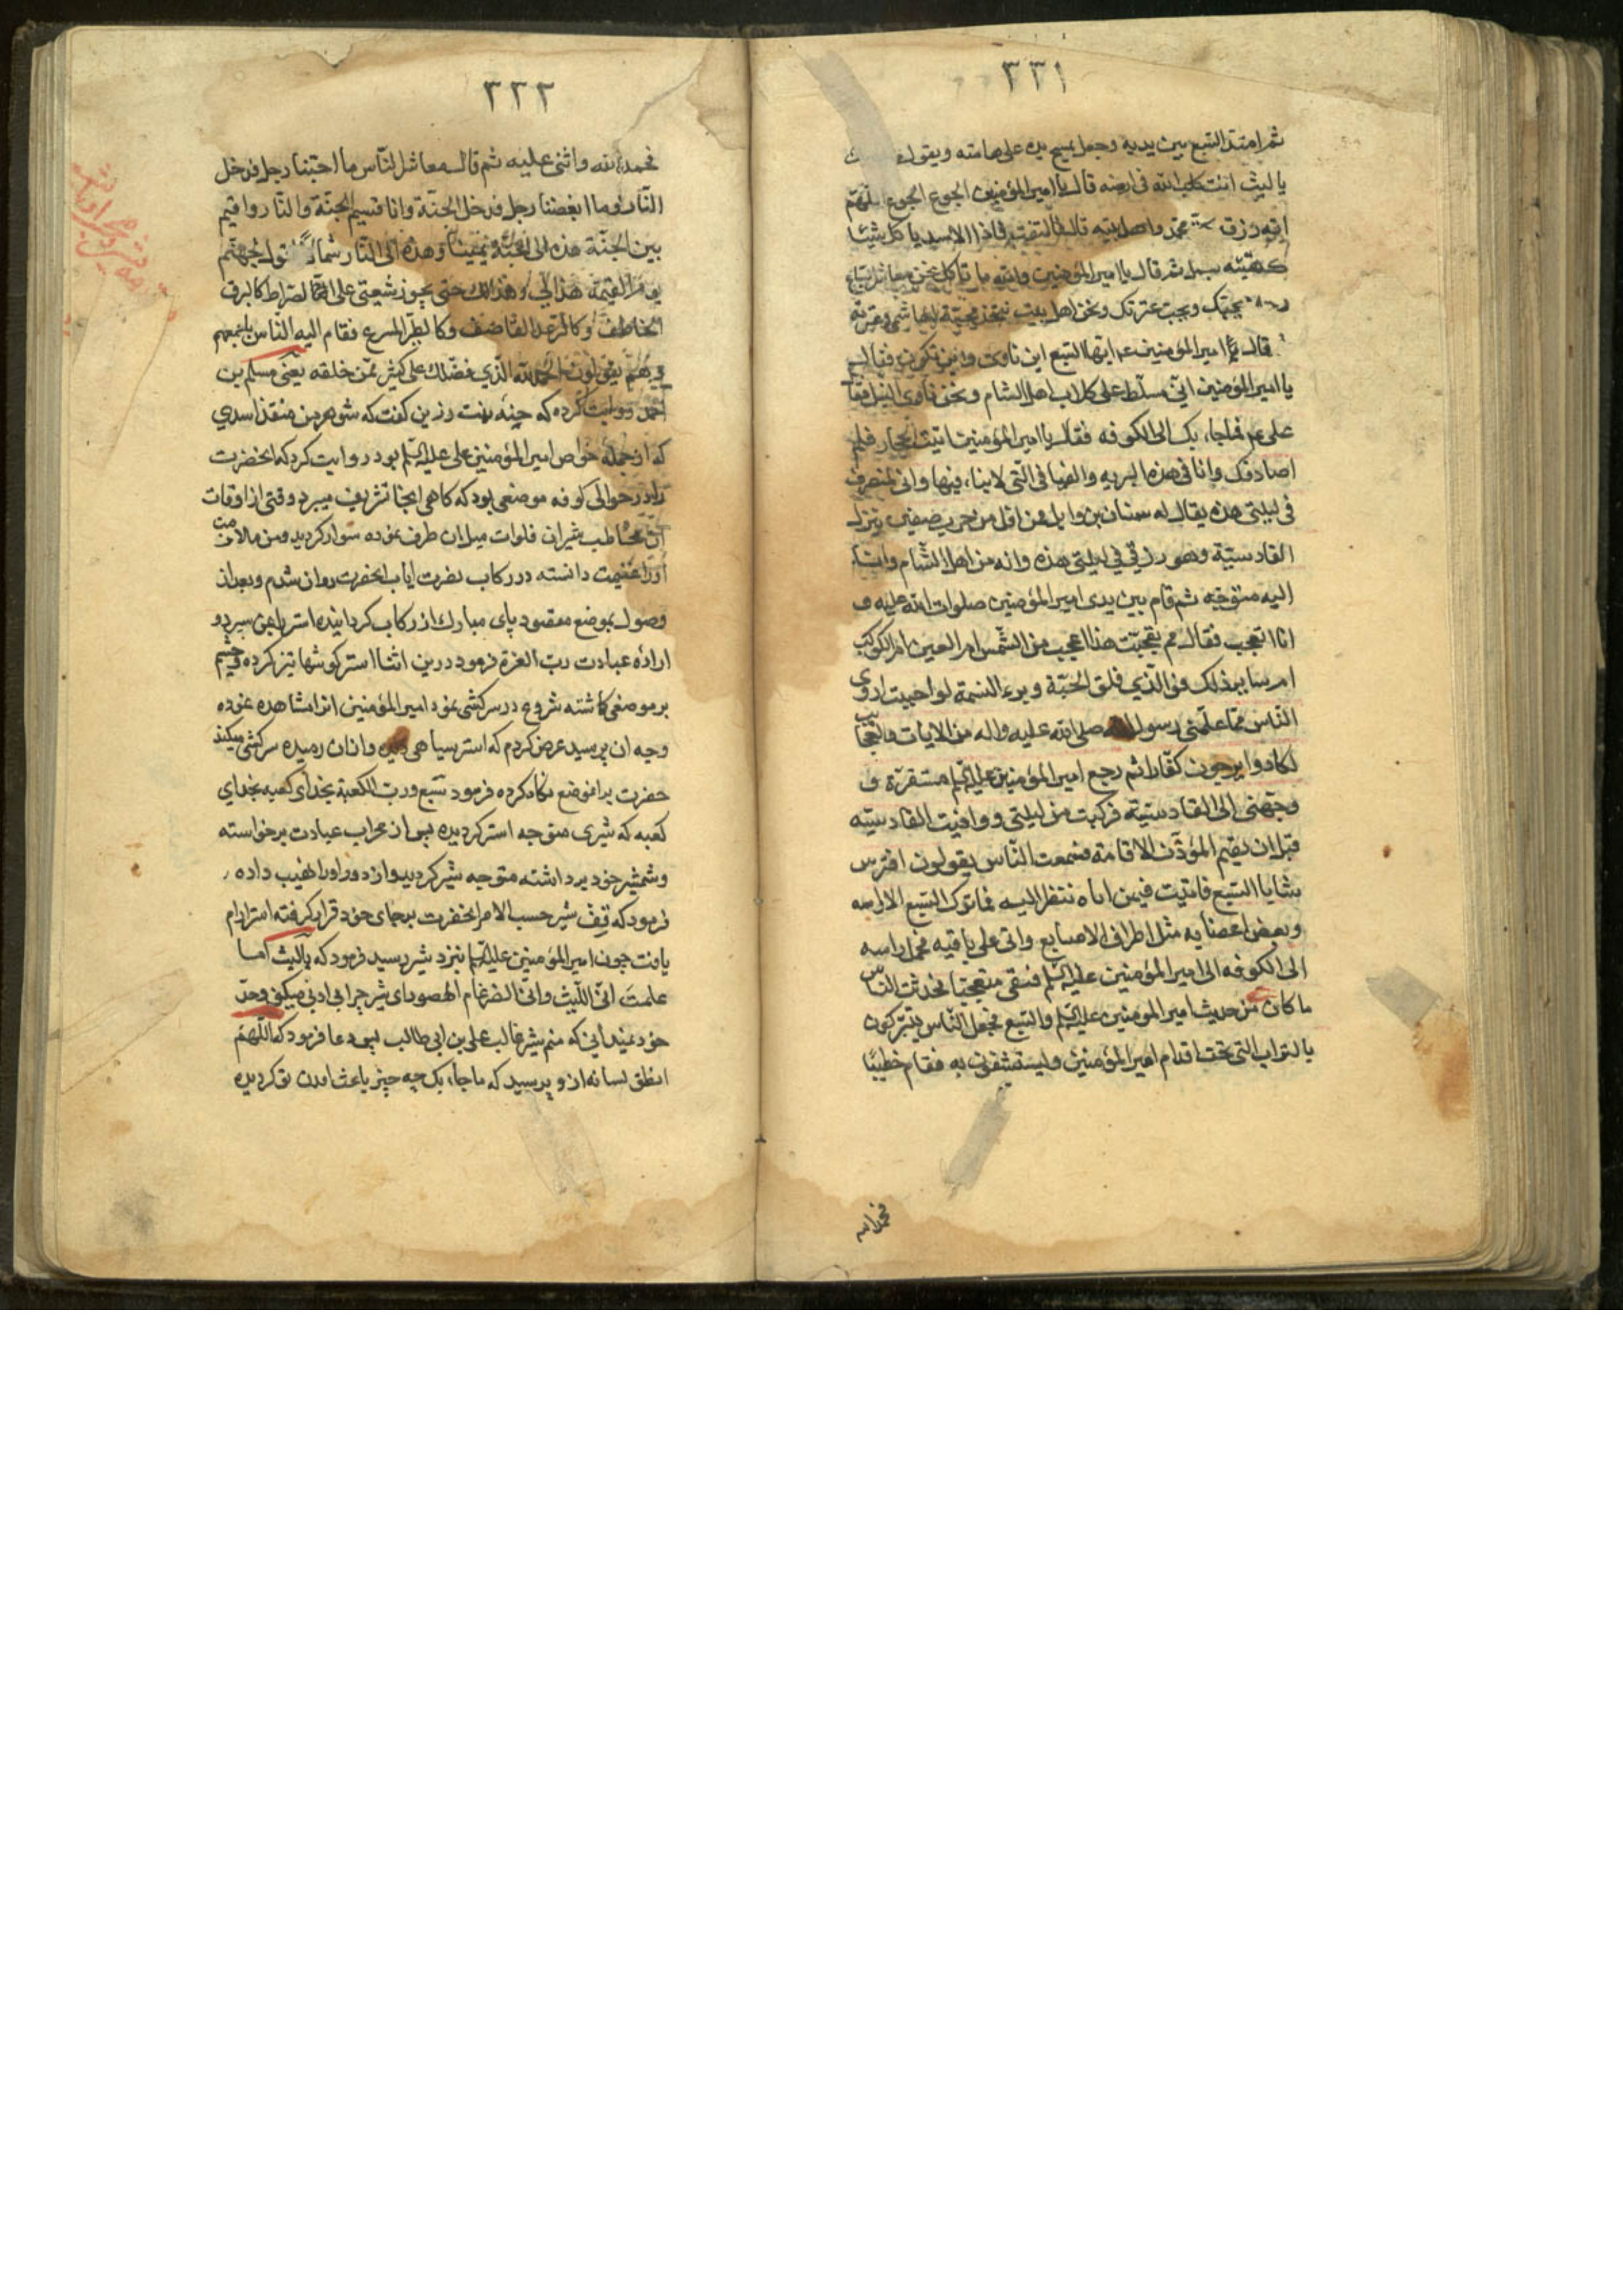 ٣٣١
ثم امتد السبع بين يديه وجعل يمسح يده على هامته ويقول
يا ليث انت كلب الله فى ارضه قال يا امير المؤمنين الجوع الجوع اللهم
ايته رزق محمد واهل بيته قال فالتفت فاذا الاسد ياكل شيئا
كهيئة ثم قال يا امير المؤمنين والله ما تاكل نحن معاشر السباع
رجلا يحبك ويحب عترتك ونحن اهل بيت محبة الهاشمى وعترته
قال ثم امير المؤمنين عم ايها السبع اين تاوى واين تكون فقال
يا امير المؤمنين انى مسلط على كلاب اهل الشام ونحن ناوى النيل فقال
على عم فما جاء بك الى الكوفه فقال يا امير المؤمنين اتيت الحجاز فلم
اصادفك وانا فى هذه البريه والفيافى التى لا ماء فيها وانى لمنصرف
فى ليلتى هذه يقال له سنان بن وايل ممن افلت من حرب صفين ينزل
القادسية وهو رزقى فى ليلتى هذه وانه من اهل الشام وانا
اليه متوجه ثم قام بين يدى امير المؤمنين صلوات الله عليه و
انا اتعجب فقال مم تعجبت هذا اعجب من الشمس ام العين ام الكوكب
ام ساير ذلك فو الذي فلق الحبة وبرء النسمة لو احببت ان اروى
الناس مما علمنى رسول الله صلى الله عليه واله من الايات والعجايب
لكادوا يرجعون كفارا ثم رجع امير المؤمنين عليه السلم مستقره و
وجهنى الى القادسية فركبت من ليلتى ووافيت القادسيه
قبل ان يقيم المؤذن الاقامة فسمعت الناس يقولون افترس
سنانا السبع فاتيت فيمن اتاه ننظر اليه فما ترك السبع الا راسه
وبعض اعضايه مثل اطراف الاصابع واتى على باقيه فحمل راسه
الى الكوفه الى امير المؤمنين عليه السلم فبقى متعجبا فحدثت الناس
ما كان من حديث امير المؤمنين عليه السلم والسبع فجعل الناس يتبركون
بالتراب التى تحت اقدام امير المؤمنين ويستشفون به فقام خطيبا
فحمد الله
٣٣٢
فحمد الله واثنى عليه ثم قال معاشر الناس ما احبنا رجل فدخل
النار وما ابغضنا رجل فدخل الجنة وانا قسيم الجنة والنار واقيم
بين الجنة هذه الى الجنة يمينا وهذه الى النار شمالا اقول لجهنم
يوم القيمة هذا لى وهذا لك حتى يجوز شيعتى على الصراط كالبرق
الخاطف وكالرعد القاصف وكالطير المسرع فقام اليه الناس باجمعهم
وهم يقولون الحمد لله الذي فضلك على كثير ممن خلقه يعنى مسلم بن
احمد روايت كرده كه حبه بنت رزين كفت كه شوهر من منقذ اسدي
كه از جمله خواص امير المؤمنين على عليه السلم بود روايت كرد كه انحضرت
را در حوالى كوفه موضعى بود كه كاهى انجا تشريف ميبرد وقتى از اوقات
فلوات ميل ان طرف نموده سوار كرديد ومن ملازمت
او را غنيمت دانسته در ركاب نصرت اياب انحضرت روان شدم وبعد از
وصول بموضع مقصود پاى مبارك از ركاب كردانيده استر را بمن سپرد و
اراده عبادت رب العزة فرمود در ين اثنا استر كوشها تيز كرده وچشم
بر موضعى كاشته شروع در سركشى نمود امير المؤمنين انرا مشاهده نموده
وجه ان پرسيد عرض كردم كه استر سياهى ديده وازان رميده سركشى ميكند
حضرت بدانموضع نكاه كرده فرمود سبع ورب الكعبة بخداى كعبه بخداي
كعبه كه شيرى متوجه استر كرديده پس از محراب عبادت برخواسته
وشمشير خود برداشته متوجه شير كرديد واز دور او را نهيب داده
فرمود كه قف شير حسب الامر انحضرت برجاى خود قرار كرفته ارام
يافت چون امير المؤمنين عليه السلم نزد شير رسيد فرمود كه ياليث اما
علمت انى الليث وانى الضرغام الهصور اى شير چرا بى ادبى ميكنى وحد
خود نميدانى كه منم شير غالب على بن ابى طالب پس دعا فرمود كه اللهم
انطق لسانه از و پرسيد كه ما جاء بك چه چيز باعث امدن تو كرديده